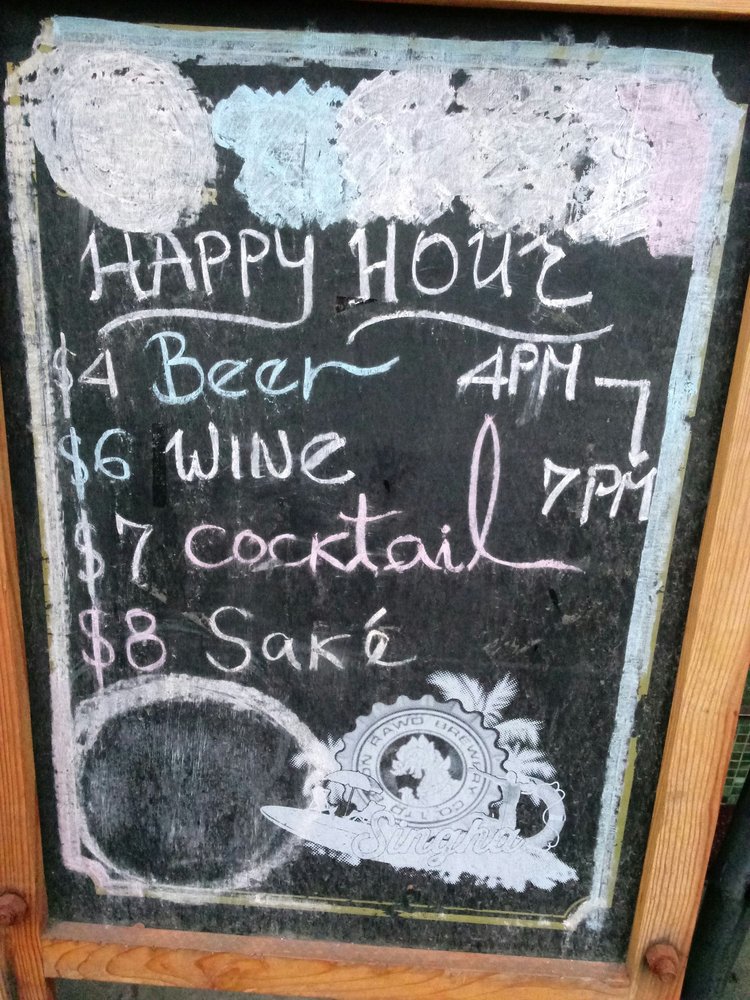 HAPPY HOUr
$4 Beer 4PM
$6 WINe 7PM
$7 cocktail
$8 Saké
RAWD BREWERY CO., LTD
Singha